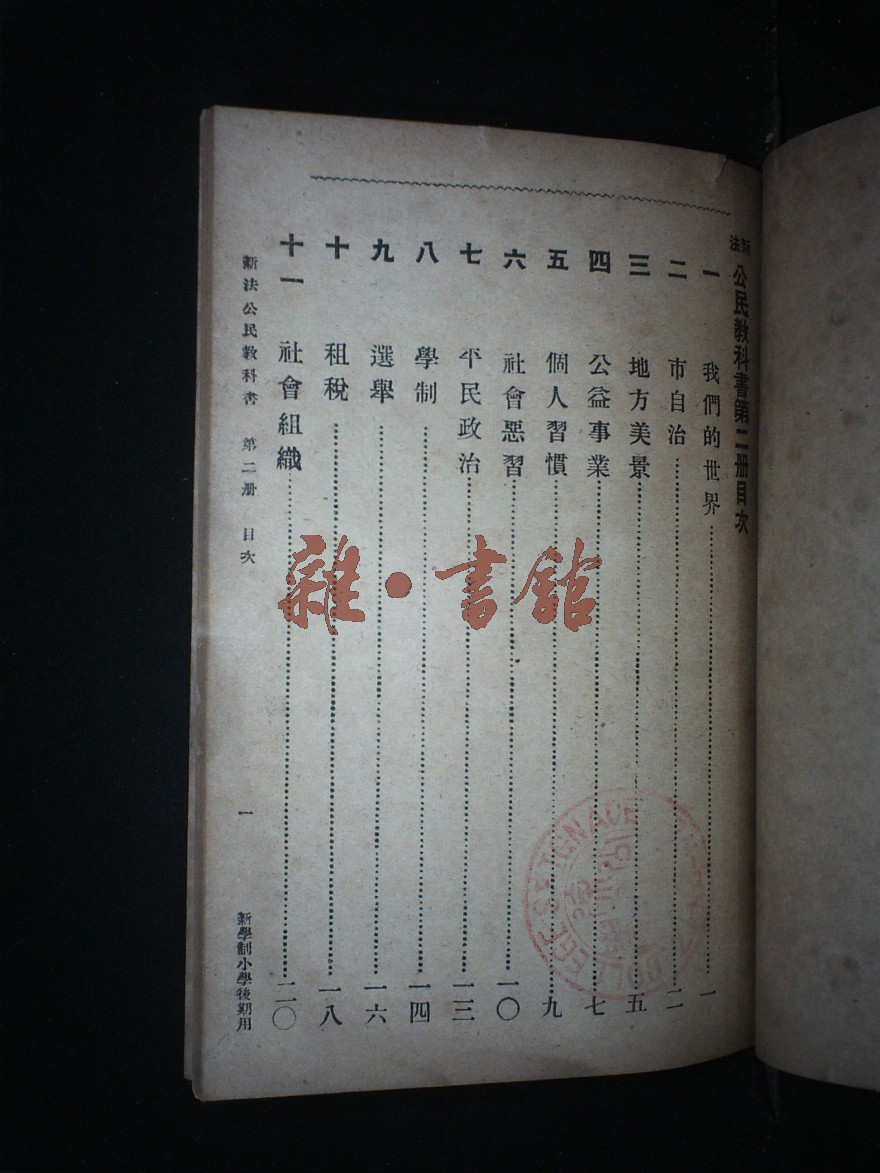 新法公民教科書第二册目次
一 我們的世界 一
二 市自治 二
三 地方美景 五
四 公益事業 七
五 個人習慣 九
六 社會惡習 一〇
七 平民政治 一三
八 學制 一四
九 選舉 一六
十 租稅 一八
十一 社會組織 二〇
新法公民教科書 第二册 目次 一 新學制小學後期用
雜·書館
ST IGNACE